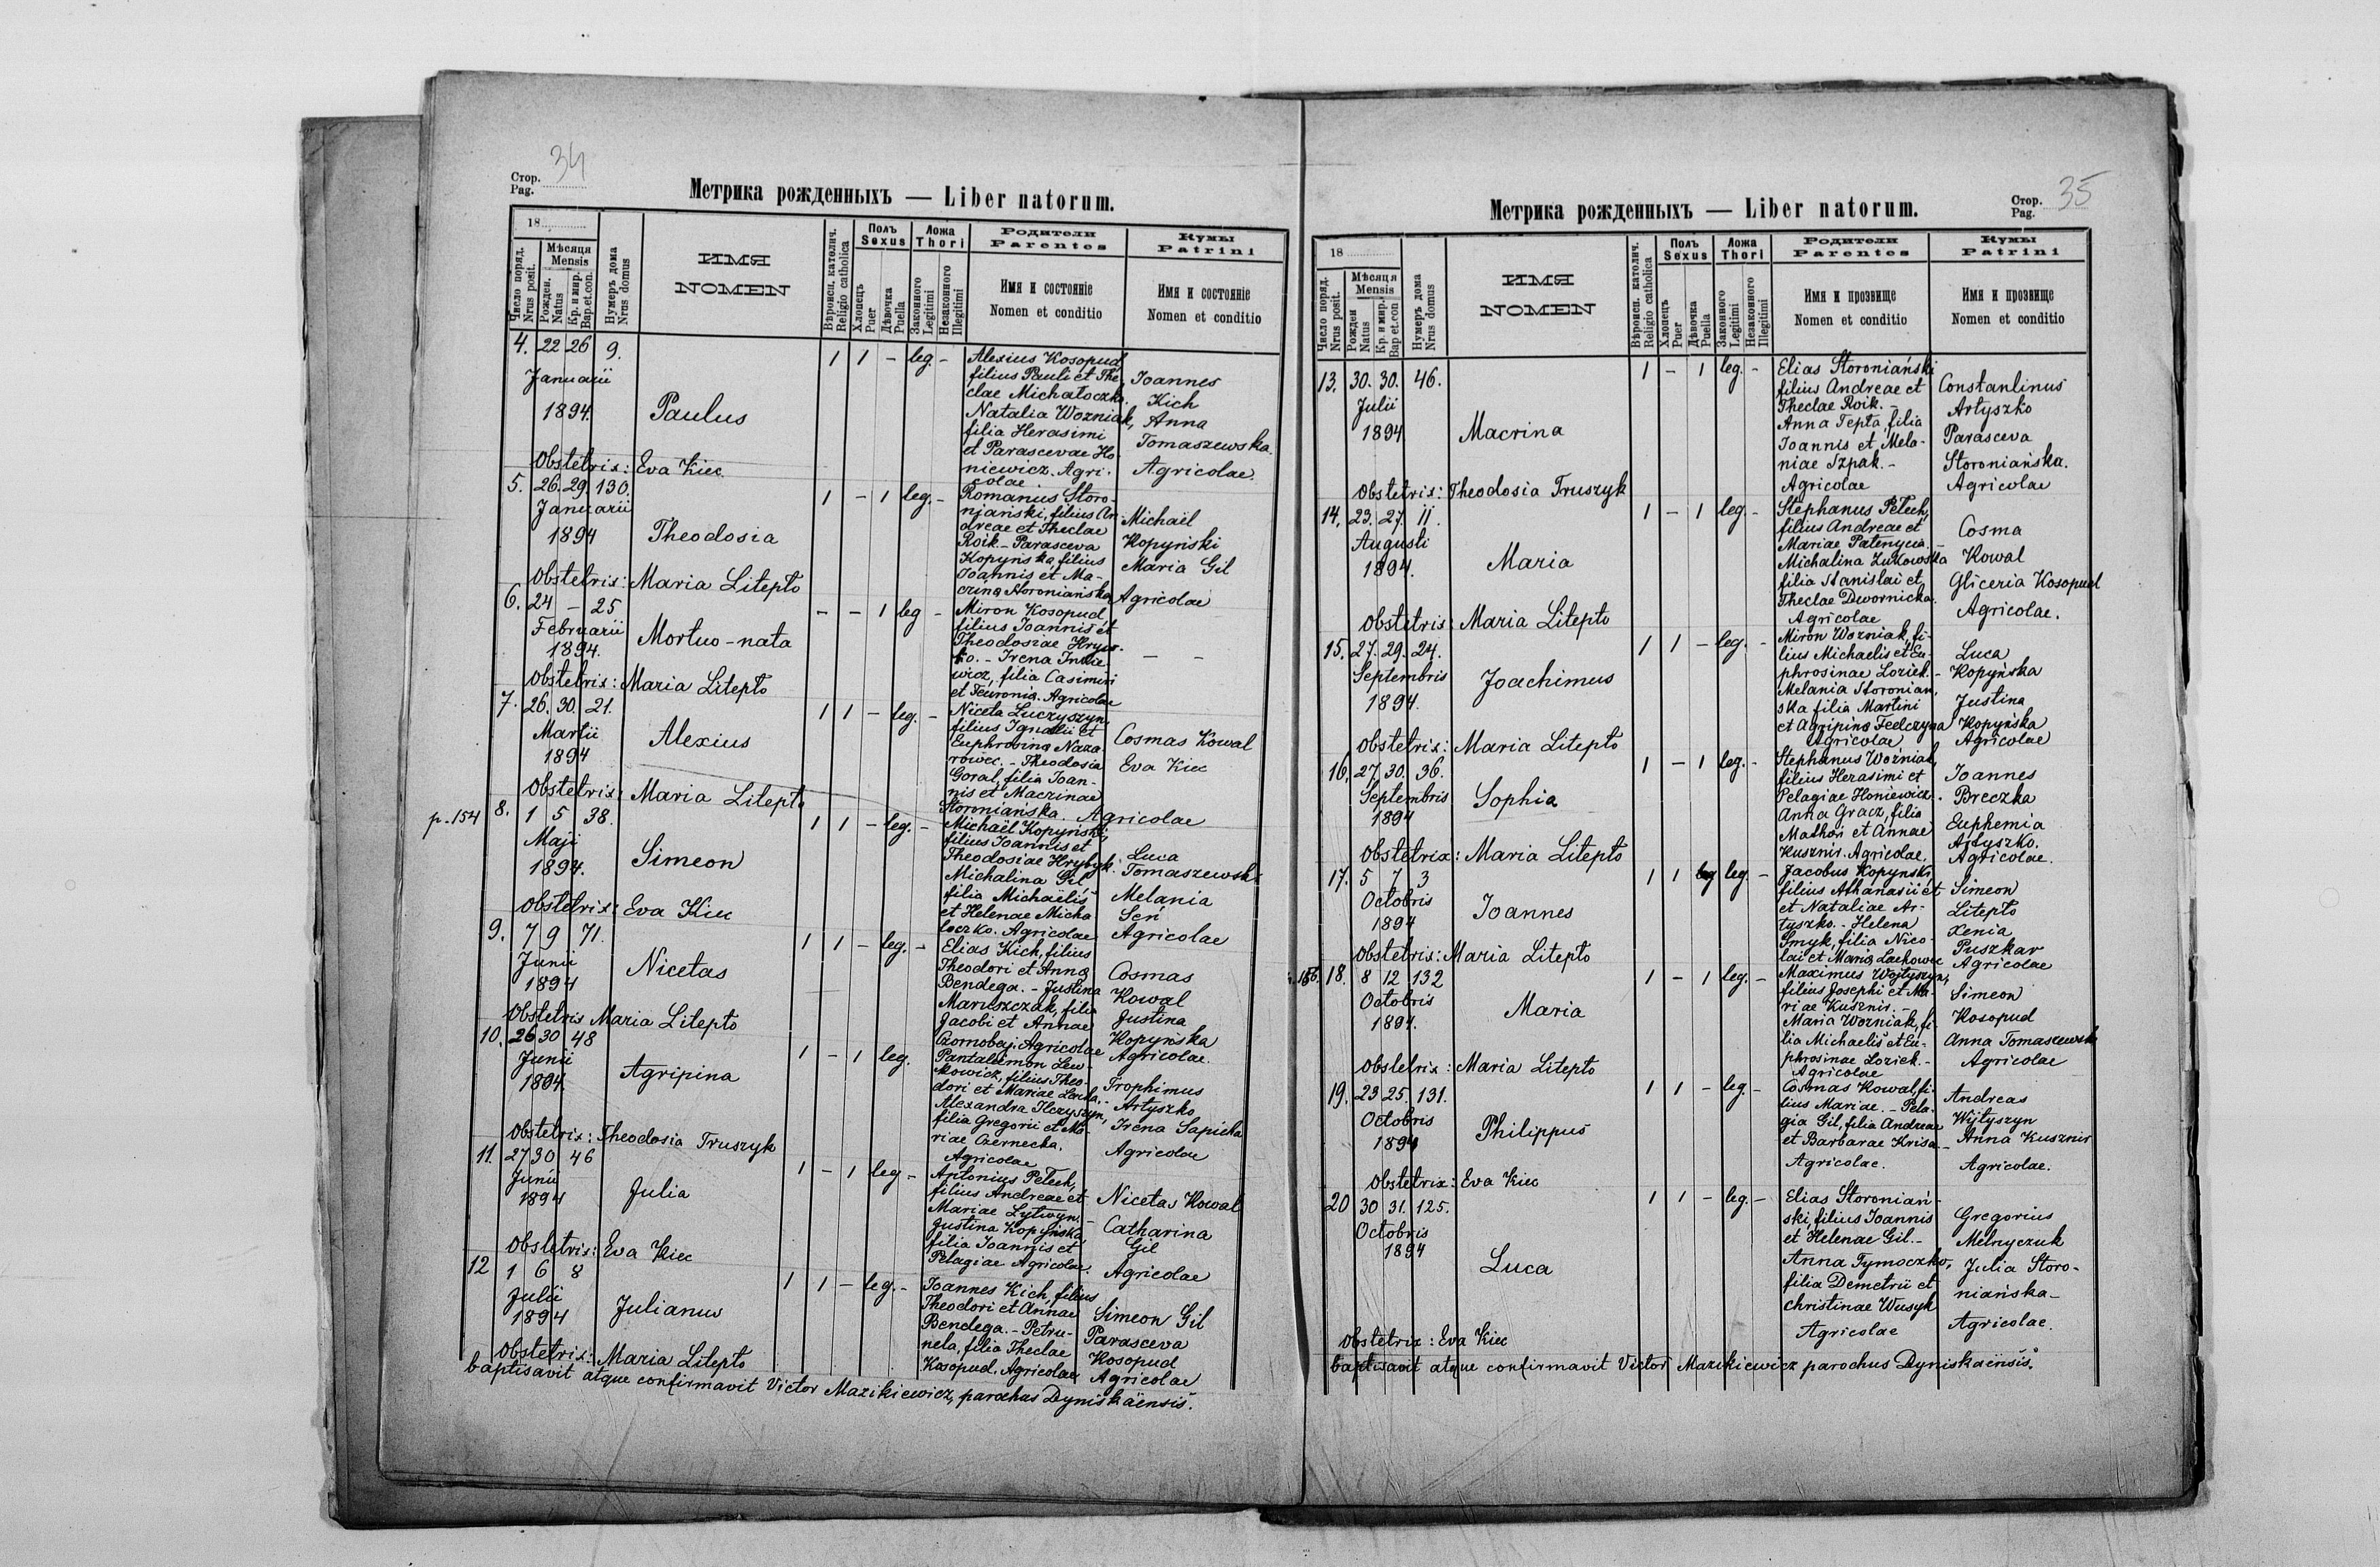 34
Стор.
Pag.
Метрика рожденныхъ — Liber natorum.
18
Число поряд.
Nrus posit.
Мѣсяця
Mensis
Рожден.
Natus
Кр. и мир.
Bap. et.con.
Нумеръ дома
Nrus domus
ИМЯ
NOMEN
Вѣроисп. католич.
Religio catholica
Полъ
Sexus
Хлопецъ
Puer
Дѣвочка
Puella
Ложа
Thori
Законного
Legitimi
Незаконного
Illegitimi
Родители
Parentes
Имя и состояніе
Nomen et conditio
Кумы
Patrini
Имя и состояніе
Nomen et conditio
4. 22 26 9.
Januarii
1894.
Paulus
1 1 - leg. -
Alexius Kosopud
filius Pauli et The
clae Michałoczko.
Natalia Wozniak,
filia Herasimi
et Parascevae Ho-
niewicz. Agri-
colae.
Joannes
Kich
Anna
Tomaszewska
Agricolae.
Obstetrix: Eva Kiec
5. 26. 29. 130.
Januarii
1894
Theodosia
1 - 1 leg. -
Romanus Storo-
niański, filius An-
dreae et Theclae
Roik. - Parasceva
Kopyńska, filius
Joannis et Ma-
crina Storoniańska
Michaël
Kopyński
Maria Gil
Agricolae
Obstetrix: Maria Litepło
6. 24 - 25
Februarii
1894.
Mortuo-nata
- - 1 leg -
Miron Kosopud
filius Joannis et
Theodosiae
- Irena
wicz, filia Casimiri
et Feuronia. Agricolae
- -
Obstetrix: Maria Litepło
7. 26. 30. 21.
Martii
1894
Alexius
1 1 - leg. -
Niceta Luczyszyn
filius Ignatii et
Euphrosina Naza
rowec. - Theodosia
Goral, filia Joan-
nis et Macrinae
Storoniańska. Agricolae
Cosmas Kowal
Eva Kiec
Obstetrix: Maria Litepło
p. 154
8. 1 5 38.
Maji
1894.
Simeon
1 1 - leg. -
Michaël Kopyński,
filius Joannis et
Theodosiae Hrycyk.
Michalina Gil
filia Michaëlis
et Helenae Micha
łoczko. Agricolae
Luca
Tomaszewski
Melania
Seń
Agricolae
Obstetrix: Eva Kiec
9. 7 9 71.
Junii
1894
Nicetas
1 1 - leg. -
Elias Kich, filius
Theodori et Anna
Bendega. - Justina
Maruszczak, filia
Jacobi et Annae
Czornobaj. Agricolae
Cosmas
Kowal
Justina
Kopyńska
Agricolae.
Obstetrix Maria Litepło
10. 26 30 48
Junii
1894.
Agripina
1 - 1 leg.
Pantaleimon Lew-
kowicz, filius Theo-
dori et Mariae
Alexandra
filia Gregorii et Ma-
riae Czernecka.
Agricolae
Trophimus
Artyszko
Irena Sapicha
Agricolae
Obstetrix: Theodosia Truszyk
11. 27 30 46
Junii
1894
Julia
1 - 1 leg -
Antonius Pełech,
filius Andreae et
Mariae Lytwyn. -
Justina Kopyńska,
filia Joannis et
Pelagiae Agricolae.
Nicetas Kowal
Catharina
Gil
Agricolae
Obstetrix: Eva Kiec
12 1 6 8
Julii
1894
Julianus
1 1 - leg. -
Joannes Kich, filius
Theodori et Annae
Bendega. - Petru-
nela, filia Theclae
Kosopud. Agricolae
Simeon Gil
Parasceva
Kosopud
Agricolae
Obstetrix: Maria Litepło
baptisavit atque confirmavit Victor Mazikiewicz, parochus Dyniskäensis.
Метрика рожденныхъ — Liber natorum.
Стор.
Pag.
35
18
Число поряд.
Nrus posit.
Мѣсяця
Mensis
Рожден
Natus
Кр. и мир.
Bap. et con
Нумеръ дома
Nrus domus
ИМЯ
NOMEN
Вѣроисп. католич.
Religio catholica
Полъ
Sexus
Хлопецъ
Puer
Дѣвочка
Puella
Ложа
Thori
Законного
Legitimi
Незаконного
Illegitimi
Родители
Parentes
Имя и прозвище
Nomen et conditio
Кумы
Patrini
Имя и прозвище
Nomen et conditio
13. 30. 30. 46.
Julii
1894
Macrina
1 - 1 leg. -
Elias Storoniański
filius Andreae et
Theclae Roik. -
Anna Tepta, filia
Joannis et Mela-
niae Szpak. -
Agricolae
Constantinus
Artyszko
Parasceva
Storoniańska.
Agricolae
Obstetrix: Theodosia Truszyk
14. 23. 27. 11.
Augusti
1894.
Maria
1 - 1 leg. -
Stephanus Pełech,
filius Andreae et
Mariae
Michalina Zukowska
filia Stanislai et
Theclae Dwornicka.
Agricolae
Cosma
Kowal
Gliceria Kosopud
Agricolae.
Obstetrix: Maria Litepło
15. 27. 29. 24.
Septembris
1894.
Joachimus
1 1 - leg. -
Miron Wozniak, fi-
lius Michaelis et Eu-
phrosinae Loziek. -
Melania Storonian-
ska filia Martini
et Agripina Fedczyna
Agricolae
Luca
Kopyńska
Justina
Kopyńska
Agricolae
Obstetrix: Maria Litepło
16. 27. 30. 36.
Septembris
1894
Sophia
1 - 1 leg. -
Stephanus Woźniak,
filius Herasimi et
Pelagiae Honiewicz. -
Anna Gracz, filia
Mathäi et Annae
Kusznir. Agricolae.
Joannes
Breczka
Euphemia
Artyszko.
Agricolae.
Obstetrix: Maria Litepło
17. 5 7 3
Octobris
1894
Joannes
1 1 leg. -
Jacobus Kopynski,
filius Athanasii et
et Nataliae Ar-
tyszko. - Helena
Smyk, filia Nico-
lai et Maria Lackowec
Simeon
Litepło
Xenia
Puszkar
Agricolae
Obstetrix: Maria Litepło
18. 8 12 132
Octobris
1894.
Maria
1 - 1 leg. -
Maximus Wojtyszyn,
filius Josephi et Ma-
riae Kusznir. -
Maria Wozniak, fi-
lia Michaelis et Eu-
phrosinae Loziek. -
Agricolae
Simeon
Kosopud
Anna Tomaszewska
Agricolae
Obstetrix: Maria Litepło
19. 23 25. 131.
Octobris
1894
Philippus
1 1 - leg. -
Cosmas Kowal, fi-
lius Mariae. - Pela-
gia Gil, filia Andreae
et Barbarae Krisa -
Agricolae.
Andreas
Wijtyszyn
Anna Kusznir
Agricolae.
Obstetrix: Eva Kiec
20 30 31. 125.
Octobris
1894
Luca
1 1 - leg. -
Elias Storoniań-
ski, filius Joannis
et Helenae Gil. -
Anna Tymoczko,
filia Demetrii et
Christinae Wusyk
Agricolae
Gregorius
Melnyczuk
Julia Storo-
niańska -
Agricolae.
Obstetrix: Eva Kiec
baptisavit atque confirmavit Victor Mazikiewicz parochus Dyniskaënsis.